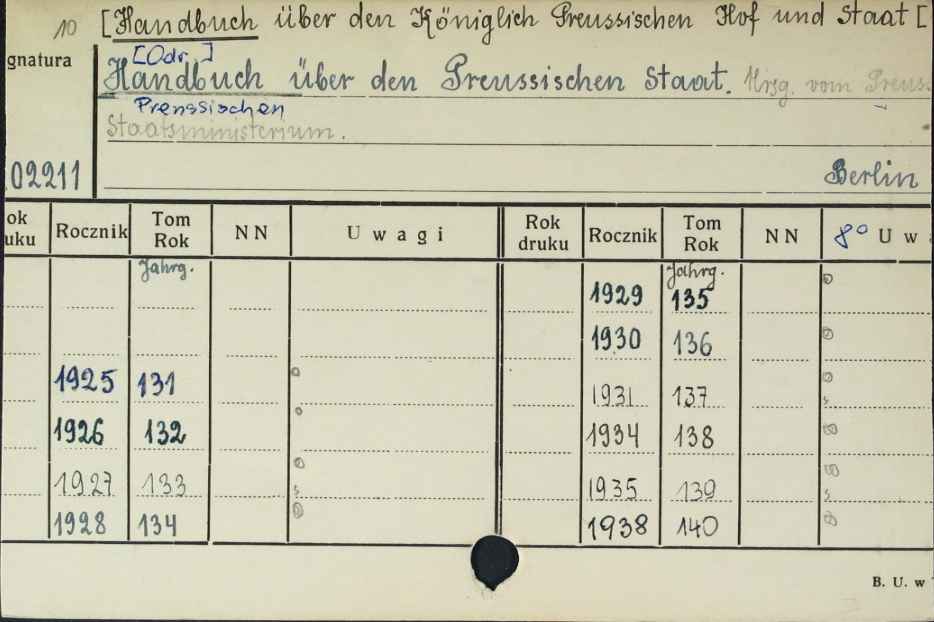 10 [Handbuch über den Königlich Preussischen Hof und Staat [
gnatura
[Odr.]
Handbuch über den Preussischen Staat. Hrsg. vom Preuss
Preussischen
Staatsministerium.
02211
Berlin
ok uku Rocznik Tom Rok NN Uwagi Rok druku Rocznik Tom Rok NN 8° Uw
Jahrg. Jahrg.
1929 135
1930 136
1925 131 1931 137
1926 132 1934 138
1927 133 1935 139
1928 134 1938 140
B. U. w